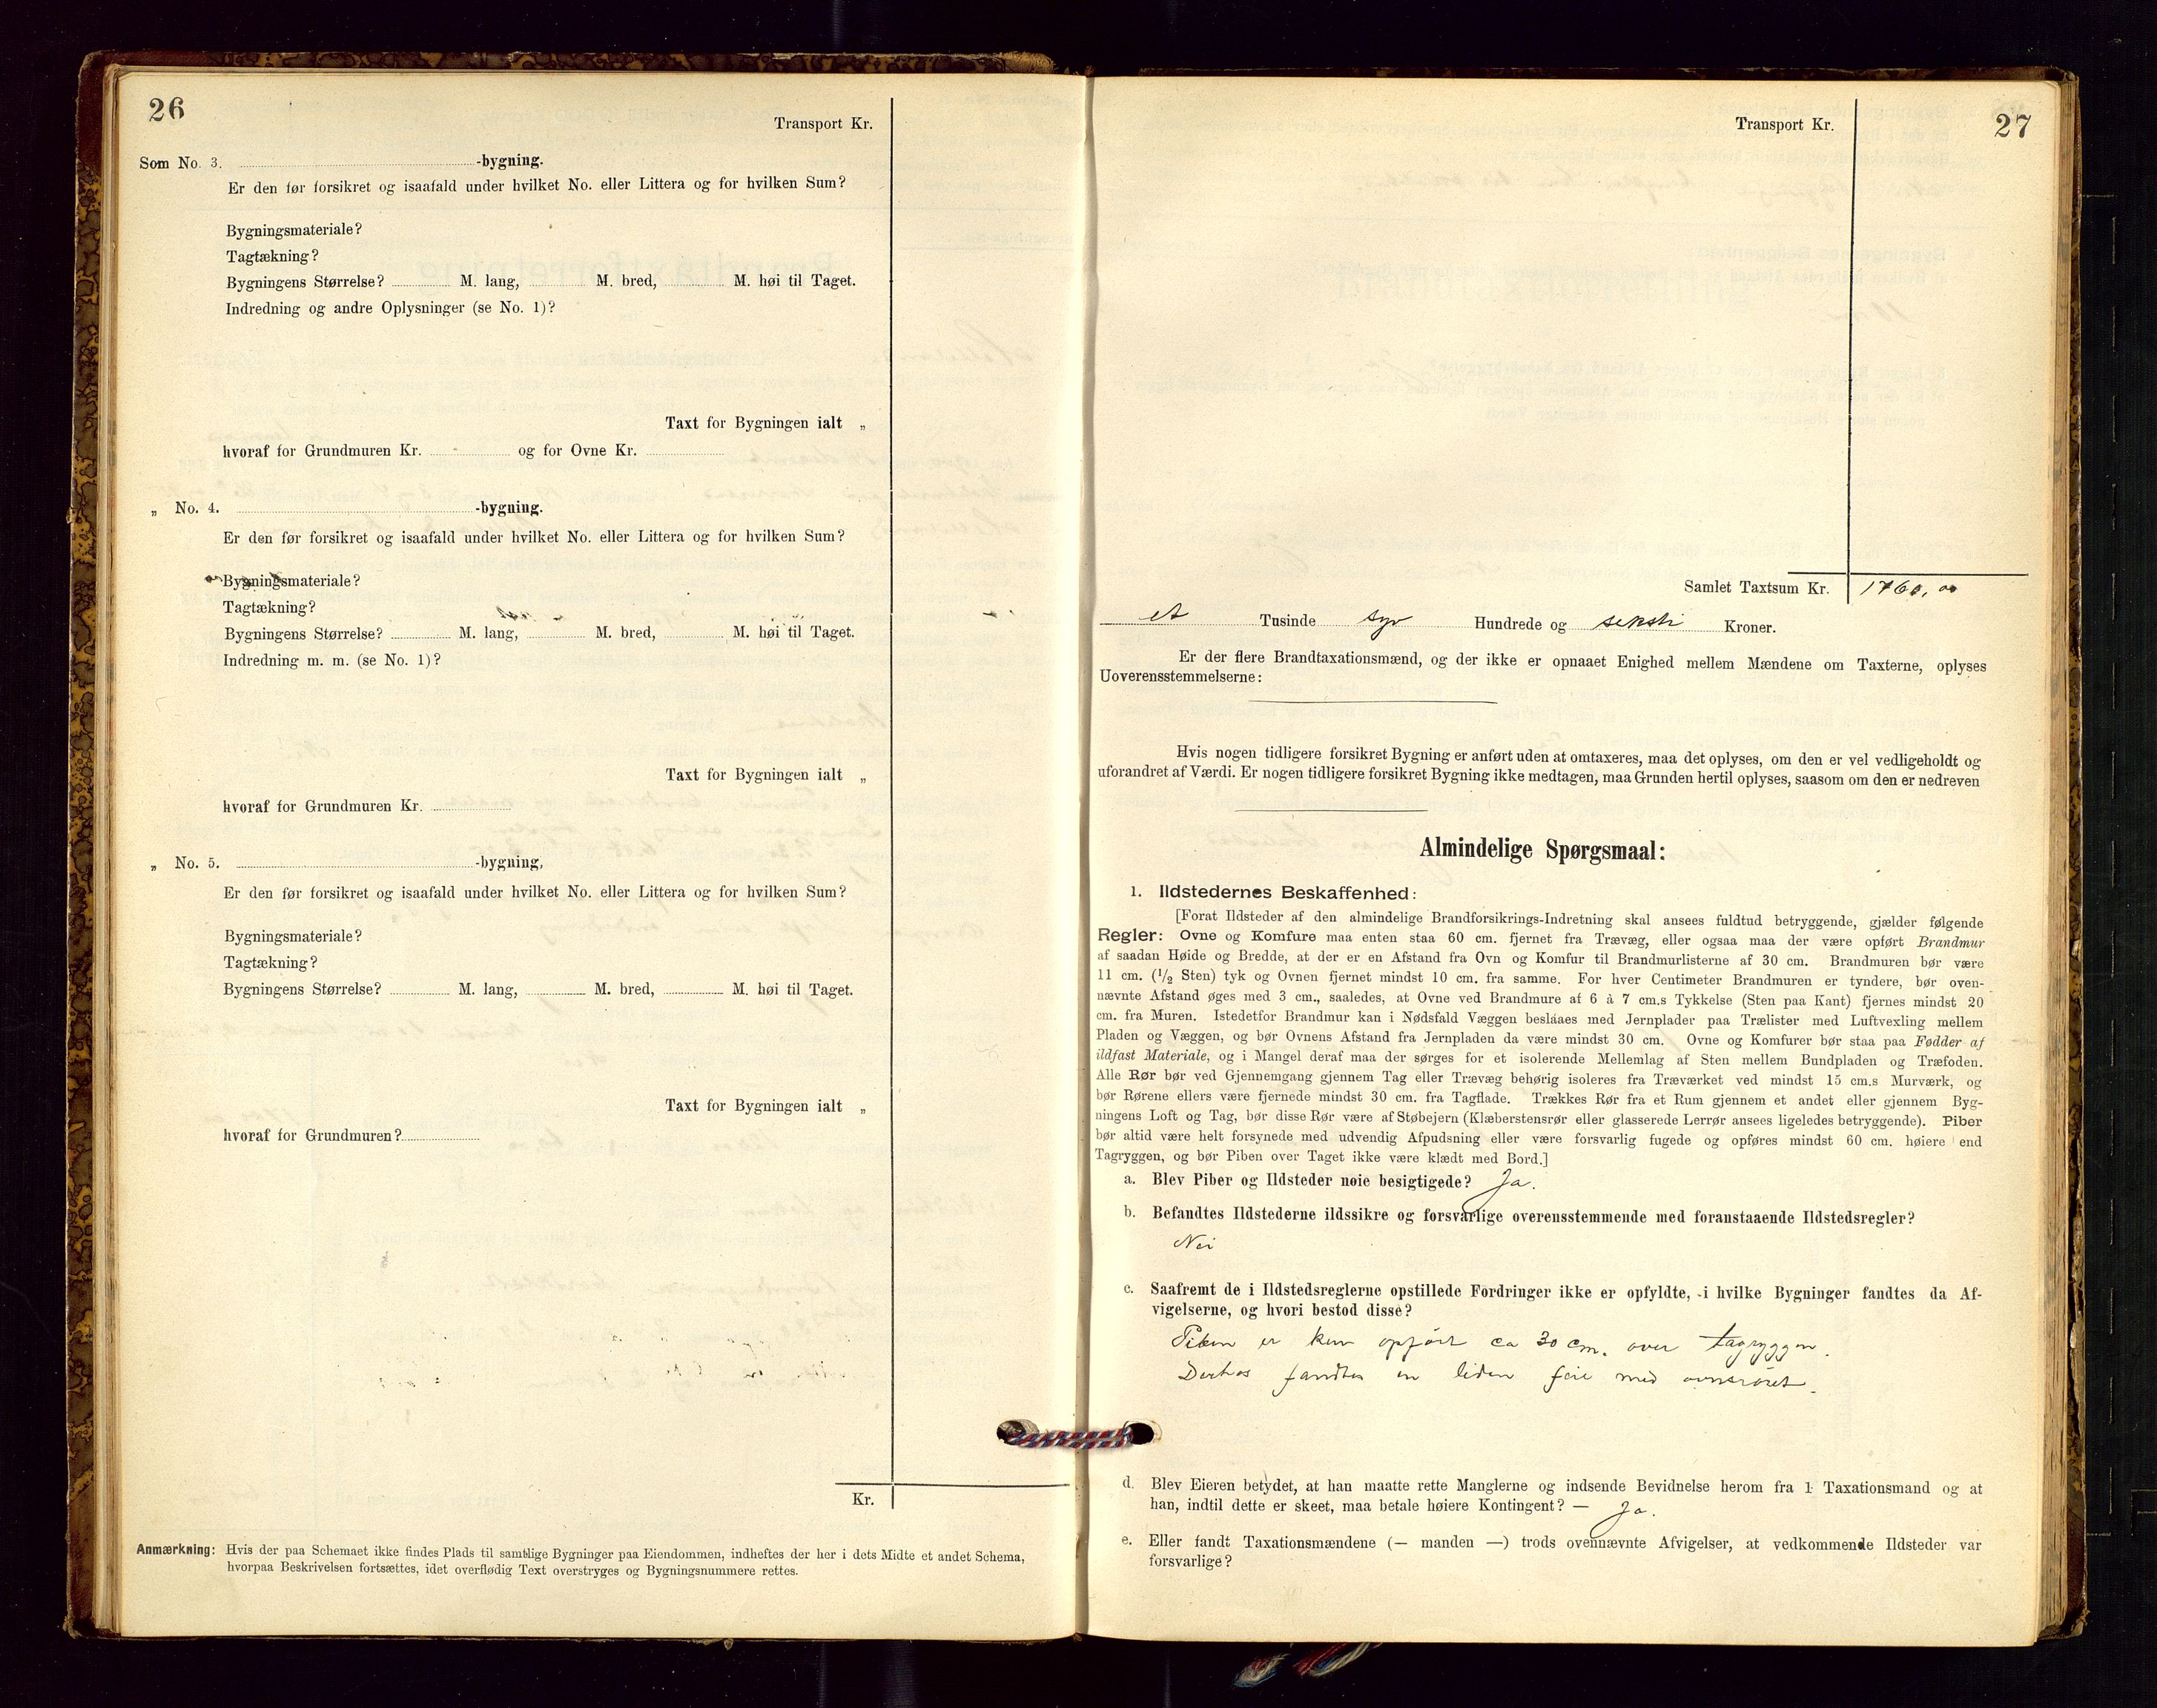 26
Transport Kr.
Som No. 3. -bygning.
Er den før forsikret og isaafald under hvilket No. eller Littera og for hvilken Sum?
Bygningsmateriale?
Tagtækning?
Bygningens Størrelse? M. lang, M. bred, M. høi til Taget.
Indredning og andre Oplysninger (se No. 1)?
Taxt for Bygningen ialt „
hvoraf for Grundmuren Kr. og for Ovne Kr.
„ No. 4. -bygning.
Er den før forsikret og isaafald under hvilket No. eller Littera og for hvilken Sum?
Bygningsmateriale?
Tagtækning?
Bygningens Størrelse? M. lang, M. bred, M. høi til Taget.
Indredning m. m. (se No. 1)?
Taxt for Bygningen ialt „
hvoraf for Grundmuren Kr.
„ No. 5. -bygning,
Er den før forsikret og isaafald under hvilket No. eller Littera og for hvilken Sum?
Bygningsmateriale?
Tagtækning?
Bygningens Størrelse? M. lang, M. bred, M. høi til Taget.
Taxt for Bygningen ialt „
hvoraf for Grundmuren?
Kr.
Anmærkning: Hvis der paa Schemaet ikke findes Plads til samtlige Bygninger paa Eiendommen, indheftes der her i dets Midte et andet Schema,
hvorpaa Beskrivelsen fortsættes, idet overflødig Text overstryges og Bygningsnummere rettes.
Transport Kr.
27
Samlet Taxtsum Kr. 1760,00
et Tusinde syv Hundrede og seksti Kroner.
Er der flere Brandtaxationsmænd, og der ikke er opnaaet Enighed mellem Mændene om Taxterne, oplyses
Uoverensstemmelserne:
Hvis nogen tidligere forsikret Bygning er anført uden at omtaxeres, maa det oplyses, om den er vel vedligeholdt og
uforandret af Værdi. Er nogen tidligere forsikret Bygning ikke medtagen, maa Grunden hertil oplyses, saasom om den er nedreven
Almindelige Spørgsmaal:
1. Ildstedernes Beskaffenhed:
[Forat Ildsteder af den almindelige Brandforsikrings-Indretning skal ansees fuldtud betryggende, gjælder følgende
Regler: Ovne og Komfure maa enten staa 60 cm. fjernet fra Trævæg, eller ogsaa maa der være opført Brandmur
af saadan Høide og Bredde, at der er en Afstand fra Ovn og Komfur til Brandmurlisterne af 30 cm. Brandmuren bør være
11 cm. (1/2 Sten) tyk og Ovnen fjernet mindst 10 cm. fra samme. For hver Centimeter Brandmuren er tyndere, bør oven-
nævnte Afstand øges med 3 cm., saaledes, at Ovne ved Brandmure af 6 à 7 cm.s Tykkelse (Sten paa Kant) fjernes mindst 20
cm. fra Muren. Istedetfor Brandmur kan i Nødsfald Væggen beslaaes med Jernplader paa Trælister med Luftvexling mellem
Pladen og Væggen, og bør Ovnens Afstand fra Jernpladen da være mindst 30 cm. Ovne og Komfurer bør staa paa Fødder af
ildfast Materiale, og i Mangel deraf maa der sørges for et isolerende Mellemlag af Sten mellem Bundpladen og Træfoden.
Alle Rør bør ved Gjennemgang gjennem Tag eller Trævæg behørig isoleres fra Træværket ved mindst 15 cm.s Murværk, og
bør Rørene ellers være fjernede mindst 30 cm. fra Tagflade. Trækkes Rør fra et Rum gjennem et andet eller gjennem Byg-
ningens Loft og Tag, bør disse Rør være af Støbejern (Klæberstensrør eller glasserede Lerrør ansees ligeledes betryggende). Piber
bør altid være helt forsynede med udvendig Afpudsning eller være forsvarlig fugede og opføres mindst 60 cm. høiere end
Tagryggen, og bør Piben over Taget ikke være klædt med Bord.]
a. Blev Piber og Ildsteder nøie besigtigede? Ja.
b. Befandtes Ildstederne ildssikre og forsvarlige overensstemmende med foranstaaende Ildstedsregler?
Nei
c. Saafremt de i Ildstedsreglerne opstillede Fordringer ikke er opfyldte, i hvilke Bygninger fandtes da Af-
vigelserne, og hvori bestod disse?
Piben er kun opført ca 30 cm. over tagryggen.
Derhos fandtes en liden feil med ovnsrøret.
d. Blev Eieren betydet, at han maatte rette Manglerne og indsende Bevidnelse herom fra 1 Taxationsmand og at
han, indtil dette er skeet, maa betale høiere Kontingent? — Ja.
e. Eller fandt Taxationsmændene (— manden —) trods ovennævnte Afvigelser, at vedkommende Ildsteder var
forsvarlige?